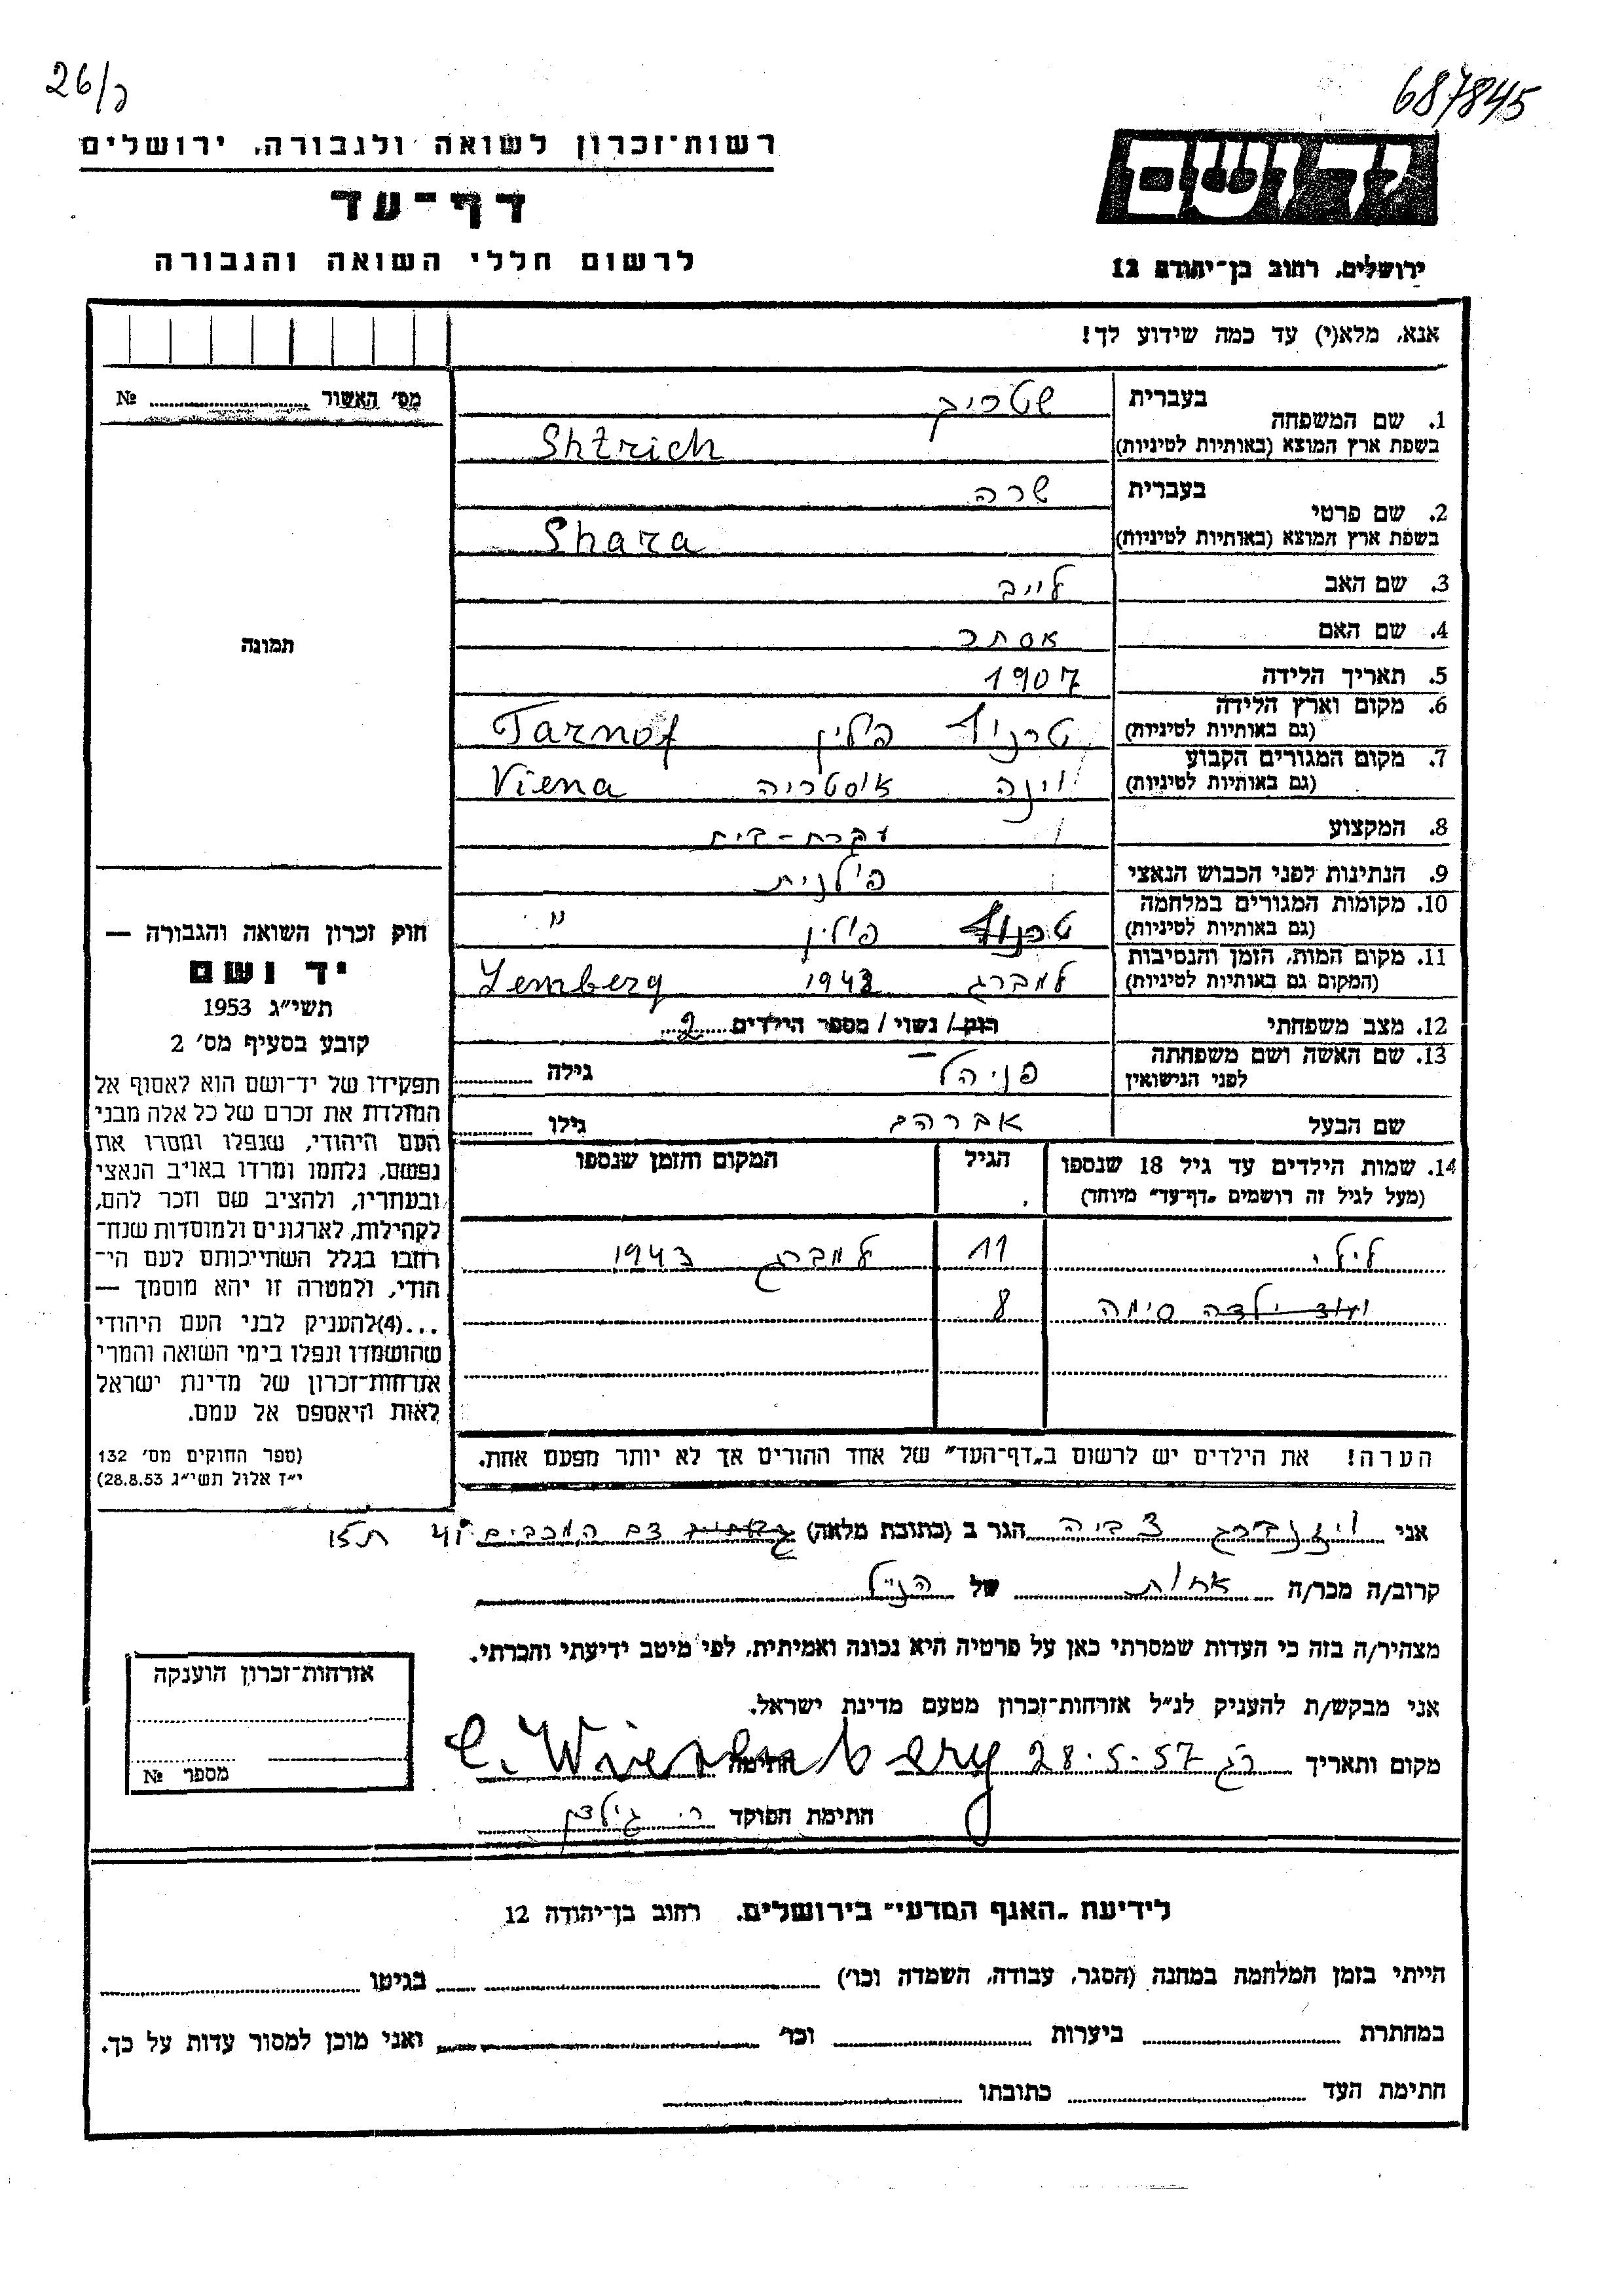 26/כ
687845
רשות־זכרון לשואה ולגבורה, ירושלים
דף־עד
לרשום חללי השואה והגבורה
יד ושם
ירושלים, רחוב בן־יהודה 12
אנא, מלא(י) עד כמה שידוע לך!
מס׳ האשור № 
תמונה
1. שם המשפחה בעברית שטריך
בשפת ארץ המוצא (באותיות לטיניות) Shtrich
2. שם פרטי בעברית שרה
בשפת ארץ המוצא (באותיות לטיניות) Shara
3. שם האב לייב
4. שם האם אסתר
5. תאריך הלידה 1907
6. מקום וארץ הלידה (גם באותיות לטיניות) טרנוף פולין Tarnof
7. מקום המגורים הקבוע (גם באותיות לטיניות) וינה אוסטריה Viena
8. המקצוע עקרת-בית
9. הנתינות לפני הכבוש הנאצי פולנית
10. מקומות המגורים במלחמה (גם באותיות לטיניות) טרנוף פולין "
11. מקום המות, הזמן והנסיבות (המקום גם באותיות לטיניות) למברג 1943 Lemberg
12. מצב משפחתי רוק/ נשוי/ מספר הילדים 2
13. שם האשה ושם משפחתה לפני הנישואין פניהל גילה
שם הבעל אברהם גילו
14. שמות הילדים עד גיל 18 שנספו (מעל לגיל זה רושמים „דף־עד״ מיוחד)
הגיל
המקום והזמן שנספו
לילי 11 למברג 1943
ועוד ילדה סימה 8
הערה! את הילדים יש לרשום ב„דף־העד״ של אחד ההורים אך לא יותר מפעם אחת.
חוק זכרון השואה והגבורה —
יד ושם
תשי״ג 1953
קובע בסעיף מס׳ 2
תפקידו של יד־ושם הוא לאסוף אל
המולדת את זכרם של כל אלה מבני
העם היהודי, שנפלו ומסרו את
נפשם, נלחמו ומרדו באויב הנאצי
ובעוזריו, ולהציב שם וזכר להם,
לקהילות, לארגונים ולמוסדות שנח־
רבו בגלל השתייכותם לעם הי־
הודי, ולמטרה זו יהא מוסמך —
...(4)להעניק לבני העם היהודי
שהושמדו ונפלו בימי השואה והמרי
אזרחות־זכרון של מדינת ישראל
לאות היאספם אל עמם.
(ספר החוקים מס׳ 132
י״ז אלול תשי״ג 28.8.53)
אני ויזנברג צביה הגר ב (כתובת מלאה) המכבים
קרוב/ה מכר/ה אחות של הנ״ל
מצהיר/ה בזה כי העדות שמסרתי כאן על פרטיה היא נכונה ואמיתית, לפי מיטב ידיעתי והכרתי.
אני מבקש/ת להעניק לנ״ל אזרחות־זכרון מטעם מדינת ישראל.
מקום ותאריך רג 28.5.57 חתימה C. Wiesenberg
חתימת הפוקד
אזרחות־זכרון הוענקה
מספר №
לידיעת „האגף המדעי״ בירושלים, רחוב בן־יהודה 12
הייתי בזמן המלחמה במחנה (הסגר, עבודה, השמדה וכו׳) בגיטו
במחתרת ביערות וכו׳ ואני מוכן למסור עדות על כך.
חתימת העד כתובתו